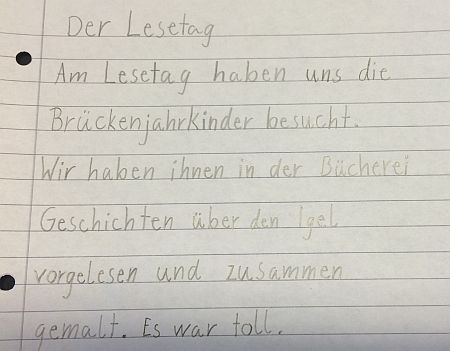 Der Lesetag
Am Lesetag haben uns die
Brückenjahrkinder besucht.
Wir haben ihnen in der Bücherei
Geschichten über den Igel
vorgelesen und zusammen
gemalt. Es war toll.